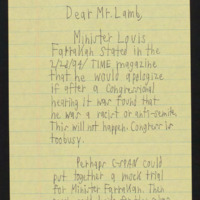 Dear Mr. Lamb,
Minister Louis
Farrakhan stated in the
2/28/94 TIME magazine
that he would apologize
if after a Congressional
hearing it was found that
he was a racist or anti-semite.
This will not happen. Congress is
too busy.
Perhaps C-SPAN could
put together a mock trial
for Minister Farrakhan. Then